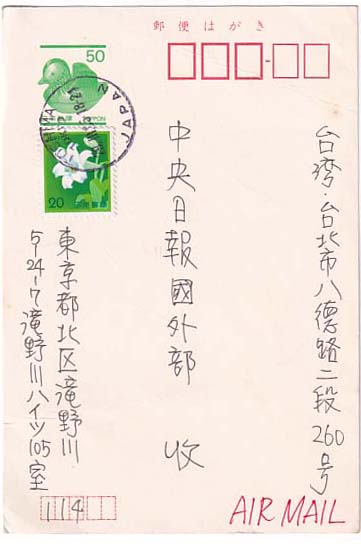 郵便はがき
50
NIPPON
JAPAN
20
台湾・台北市八德路二段260号
中央日報國外部 收
東京都北区滝野川
5-24-7滝野川ハイツ105室
114
AIR MAIL